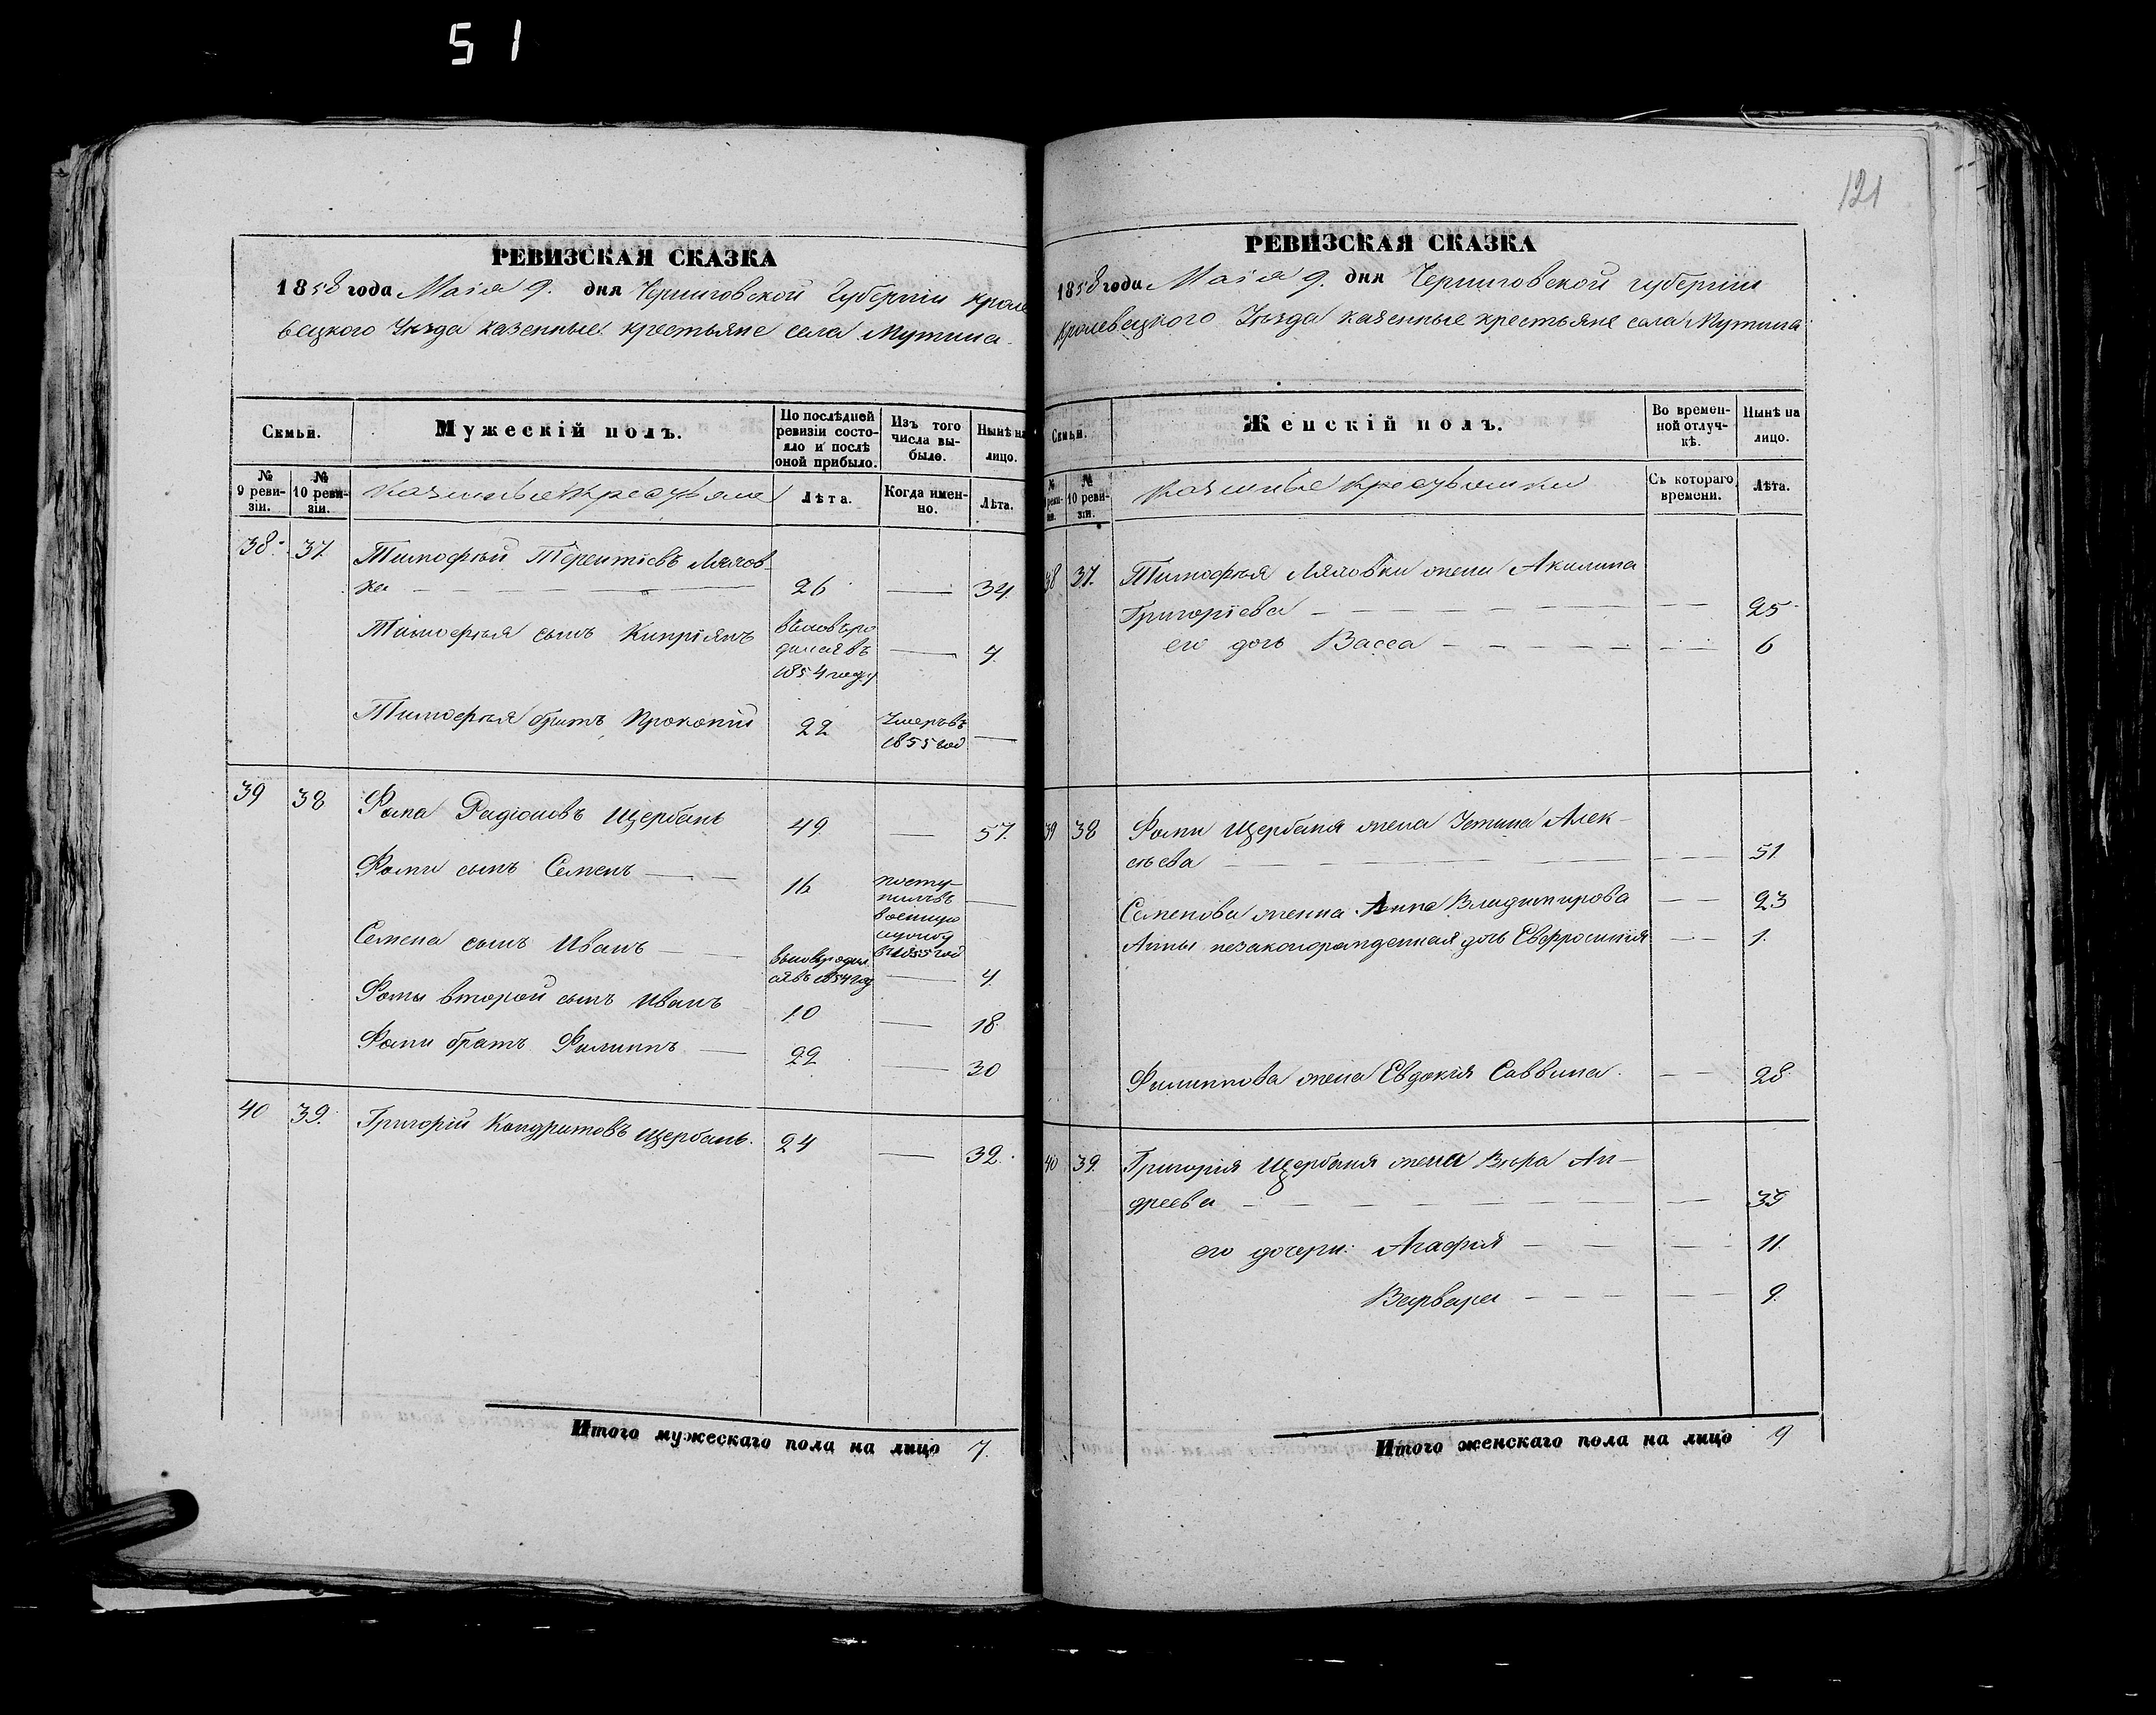 51
РЕВИЗСКАЯ СКАЗКА
1858 года Маія 9. дня Черниговской Губерніи Кроле
вецкого Уѣзда казенные крестьяне села Мутина.
Семьи.
Мужескій полъ.
По послѣдней ревизіи состояло и послѣ оной прибыло.
Изъ того числа выбыло.
Нынѣ на лицо.
№ 9 ревизіи.
№ 10 ревизіи.
Казенные Крестьяне
Лѣта.
Когда именно.
Лѣта.
38. 37 Тимофѣй Терентіевъ Ляхов-
ка 26 34
Тимофѣя сынъ Кипріянъ 4
1854 году
Тимофѣя братъ Прокопій 22 Умеръ въ
1855 год
39 38 Фома Радіоновъ Щербань 49 57.
Фомы сынъ Семенъ 16 посту-
пилъ въ
военную
службу
въ 1855 год
Семена сынъ Иванъ вновь родил
ся въ 1854 год 4
Фомы второй сынъ Иванъ 10 18.
Фомы братъ Филиппъ 22 30
40 39. Григорій Кондратовъ Щербань. 24 32.
Итого мужескаго пола на лицо 7.
121
РЕВИЗСКАЯ СКАЗКА
1858 года Маія 9. дня Черниговской губерніи
Кролевецкого Уѣзда казенные крестьяне села Мутина
Семьи.
Женскій полъ.
Во временной отлучкѣ.
Нынѣ на лицо.
№ 10 ревизіи.
Казенные Крестьянки
Съ котораго времени.
Лѣта.
38 37. Тимофѣя Ляховки жена Акилина
Григоріева 25
его дочь Васса 6
39 38 Фомы Щербаня жена Устина Алек-
сѣева 51
Семенова женна Анна Владимирова 23
Анны незаконорожденная дочь Евфросинія 1.
Филиппова жена Евдокія Саввина. 28
40 39. Григорія Щербаня жена Вѣра Ан-
дреева
его дочери: Агафія 11.
Варвара 9.
Итого женскаго пола на лицо 9